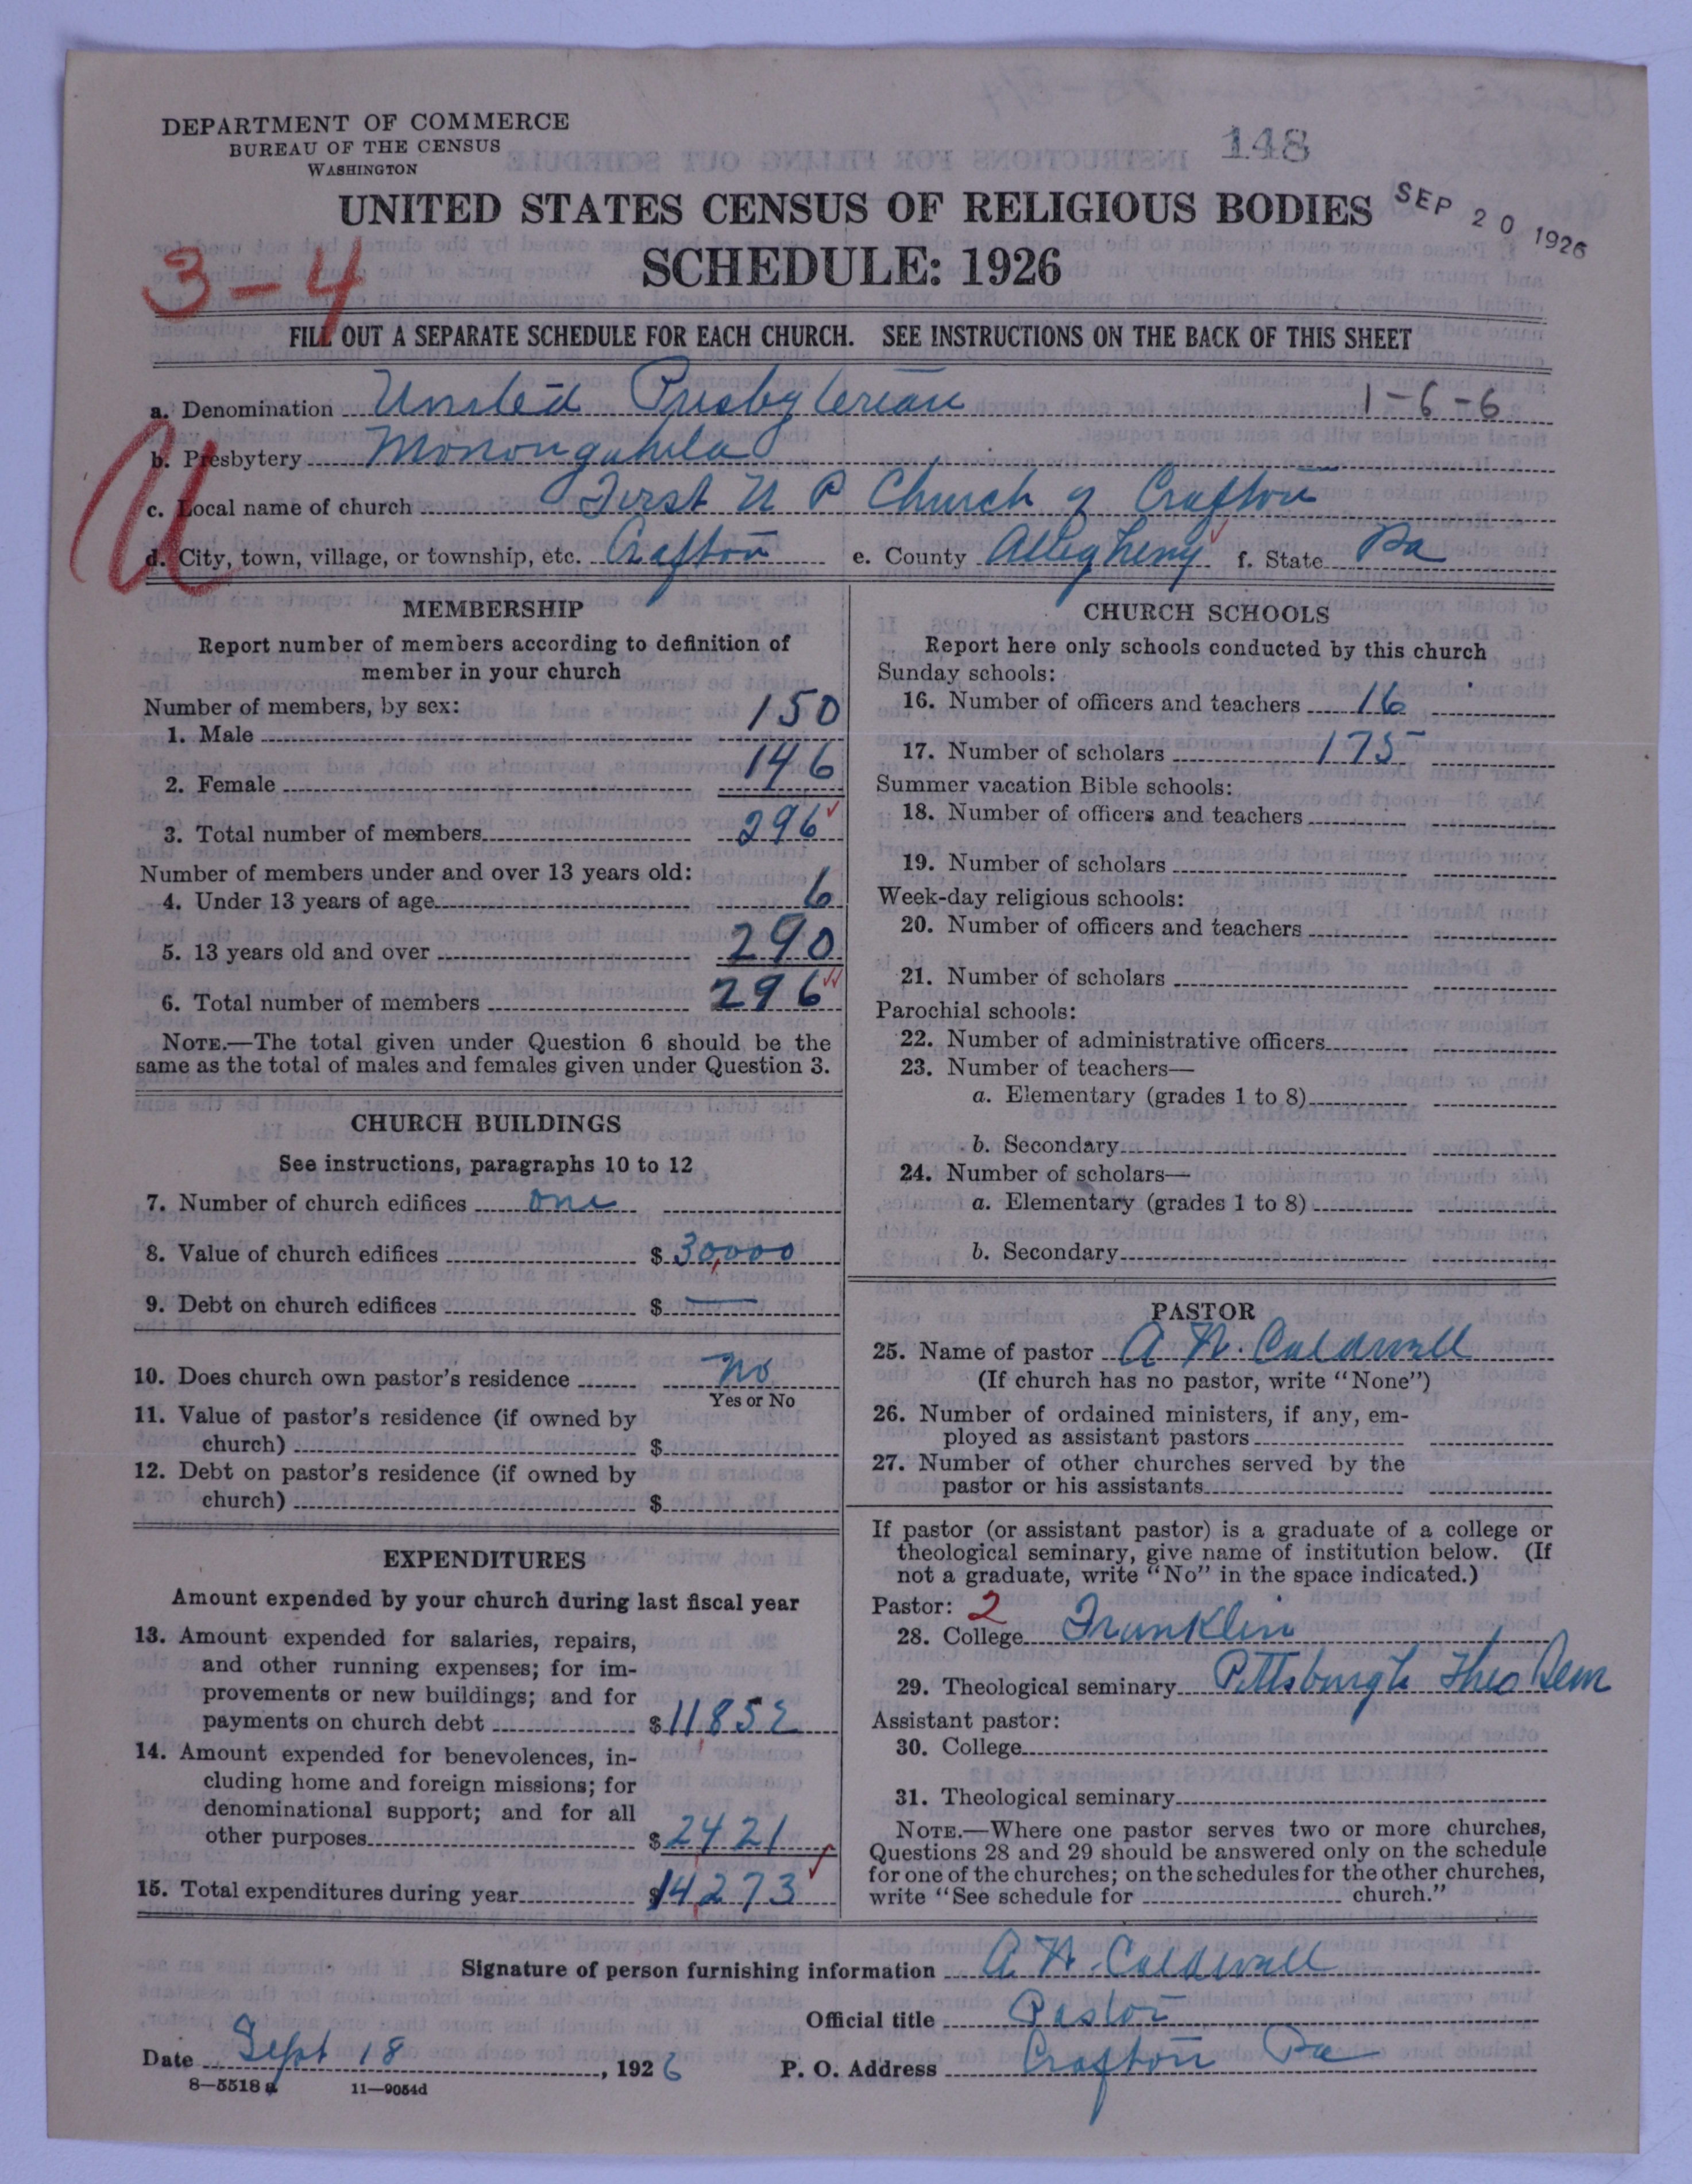 DEPARTMENT OF COMMERCE
BUREAU OF THE CENSUS
WASHINGTON
148
UNITED STATES CENSUS OF RELIGIOUS BODIES
SEP 20 1926
SCHEDULE: 1926
3-4
FILL OUT A SEPARATE SCHEDULE FOR EACH CHURCH. SEE INSTRUCTIONS ON THE BACK OF THIS SHEET
a. Denomination United Presbyterian 1-6-6
b. Presbytery Monongahela
c. Local name of church First U P Church of Crafton
d. City, town, village, or township, etc. Crafton e. County Allegheny f. State Pa
MEMBERSHIP
Report number of members according to definition of
member in your church
Number of members, by sex:
1. Male 150
2. Female 146
3. Total number of members 296
Number of members under and over 13 years old:
4. Under 13 years of age 6
5. 13 years old and over 290
6. Total number of members 296
NOTE.—The total given under Question 6 should be the
same as the total of males and females given under Question 3.
CHURCH BUILDINGS
See instructions, paragraphs 10 to 12
7. Number of church edifices one
8. Value of church edifices $ 30,000
9. Debt on church edifices $ —
10. Does church own pastor's residence No
Yes or No
11. Value of pastor's residence (if owned by
church) $
12. Debt on pastor's residence (if owned by
church) $
EXPENDITURES
Amount expended by your church during last fiscal year
13. Amount expended for salaries, repairs,
and other running expenses; for im-
provements or new buildings; and for
payments on church debt $ 11,852
14. Amount expended for benevolences, in-
cluding home and foreign missions; for
denominational support; and for all
other purposes $ 2421
15. Total expenditures during year $ 14,273
CHURCH SCHOOLS
Report here only schools conducted by this church
Sunday schools:
16. Number of officers and teachers 16
17. Number of scholars 175
Summer vacation Bible schools:
18. Number of officers and teachers
19. Number of scholars
Week-day religious schools:
20. Number of officers and teachers
21. Number of scholars
Parochial schools:
22. Number of administrative officers
23. Number of teachers—
a. Elementary (grades 1 to 8)
b. Secondary
24. Number of scholars—
a. Elementary (grades 1 to 8)
b. Secondary
PASTOR
25. Name of pastor A. N. Caldwell
(If church has no pastor, write "None")
26. Number of ordained ministers, if any, em-
ployed as assistant pastors
27. Number of other churches served by the
pastor or his assistants
If pastor (or assistant pastor) is a graduate of a college or
theological seminary, give name of institution below. (If
not a graduate, write "No" in the space indicated.)
Pastor: 2
28. College Franklin
29. Theological seminary Pittsburgh Theo Sem
Assistant pastor:
30. College
31. Theological seminary
NOTE.—Where one pastor serves two or more churches,
Questions 28 and 29 should be answered only on the schedule
for one of the churches; on the schedules for the other churches,
write "See schedule for church."
Signature of person furnishing information A. N. Caldwell
Official title Pastor
Date Sept 18, 1926 P. O. Address Crafton Pa
8—5518 a 11—9054d